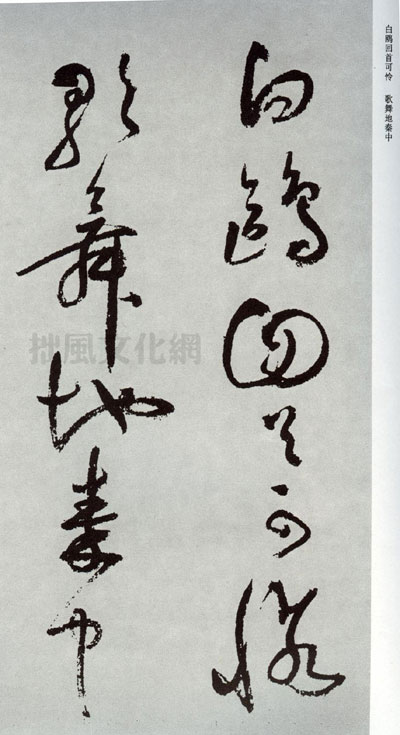 白鷗回首可憐
歌舞地秦中
白鷗回首可怜 歌舞地秦中
拙風文化網